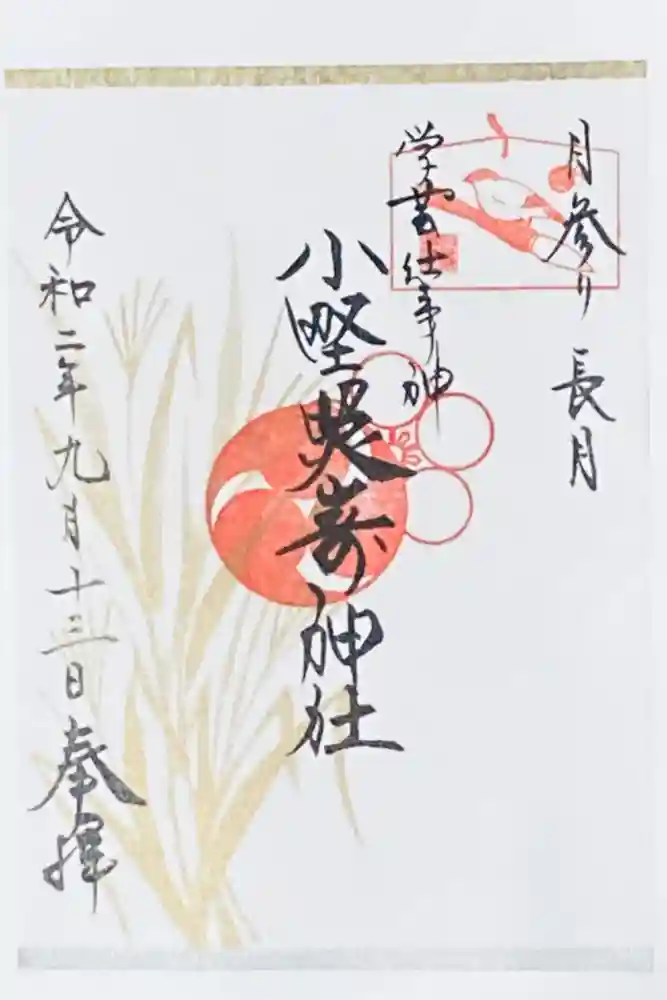 月参り 長月
学芸仕事神
小野照嵜神社
令和二年九月十三日 奉拝